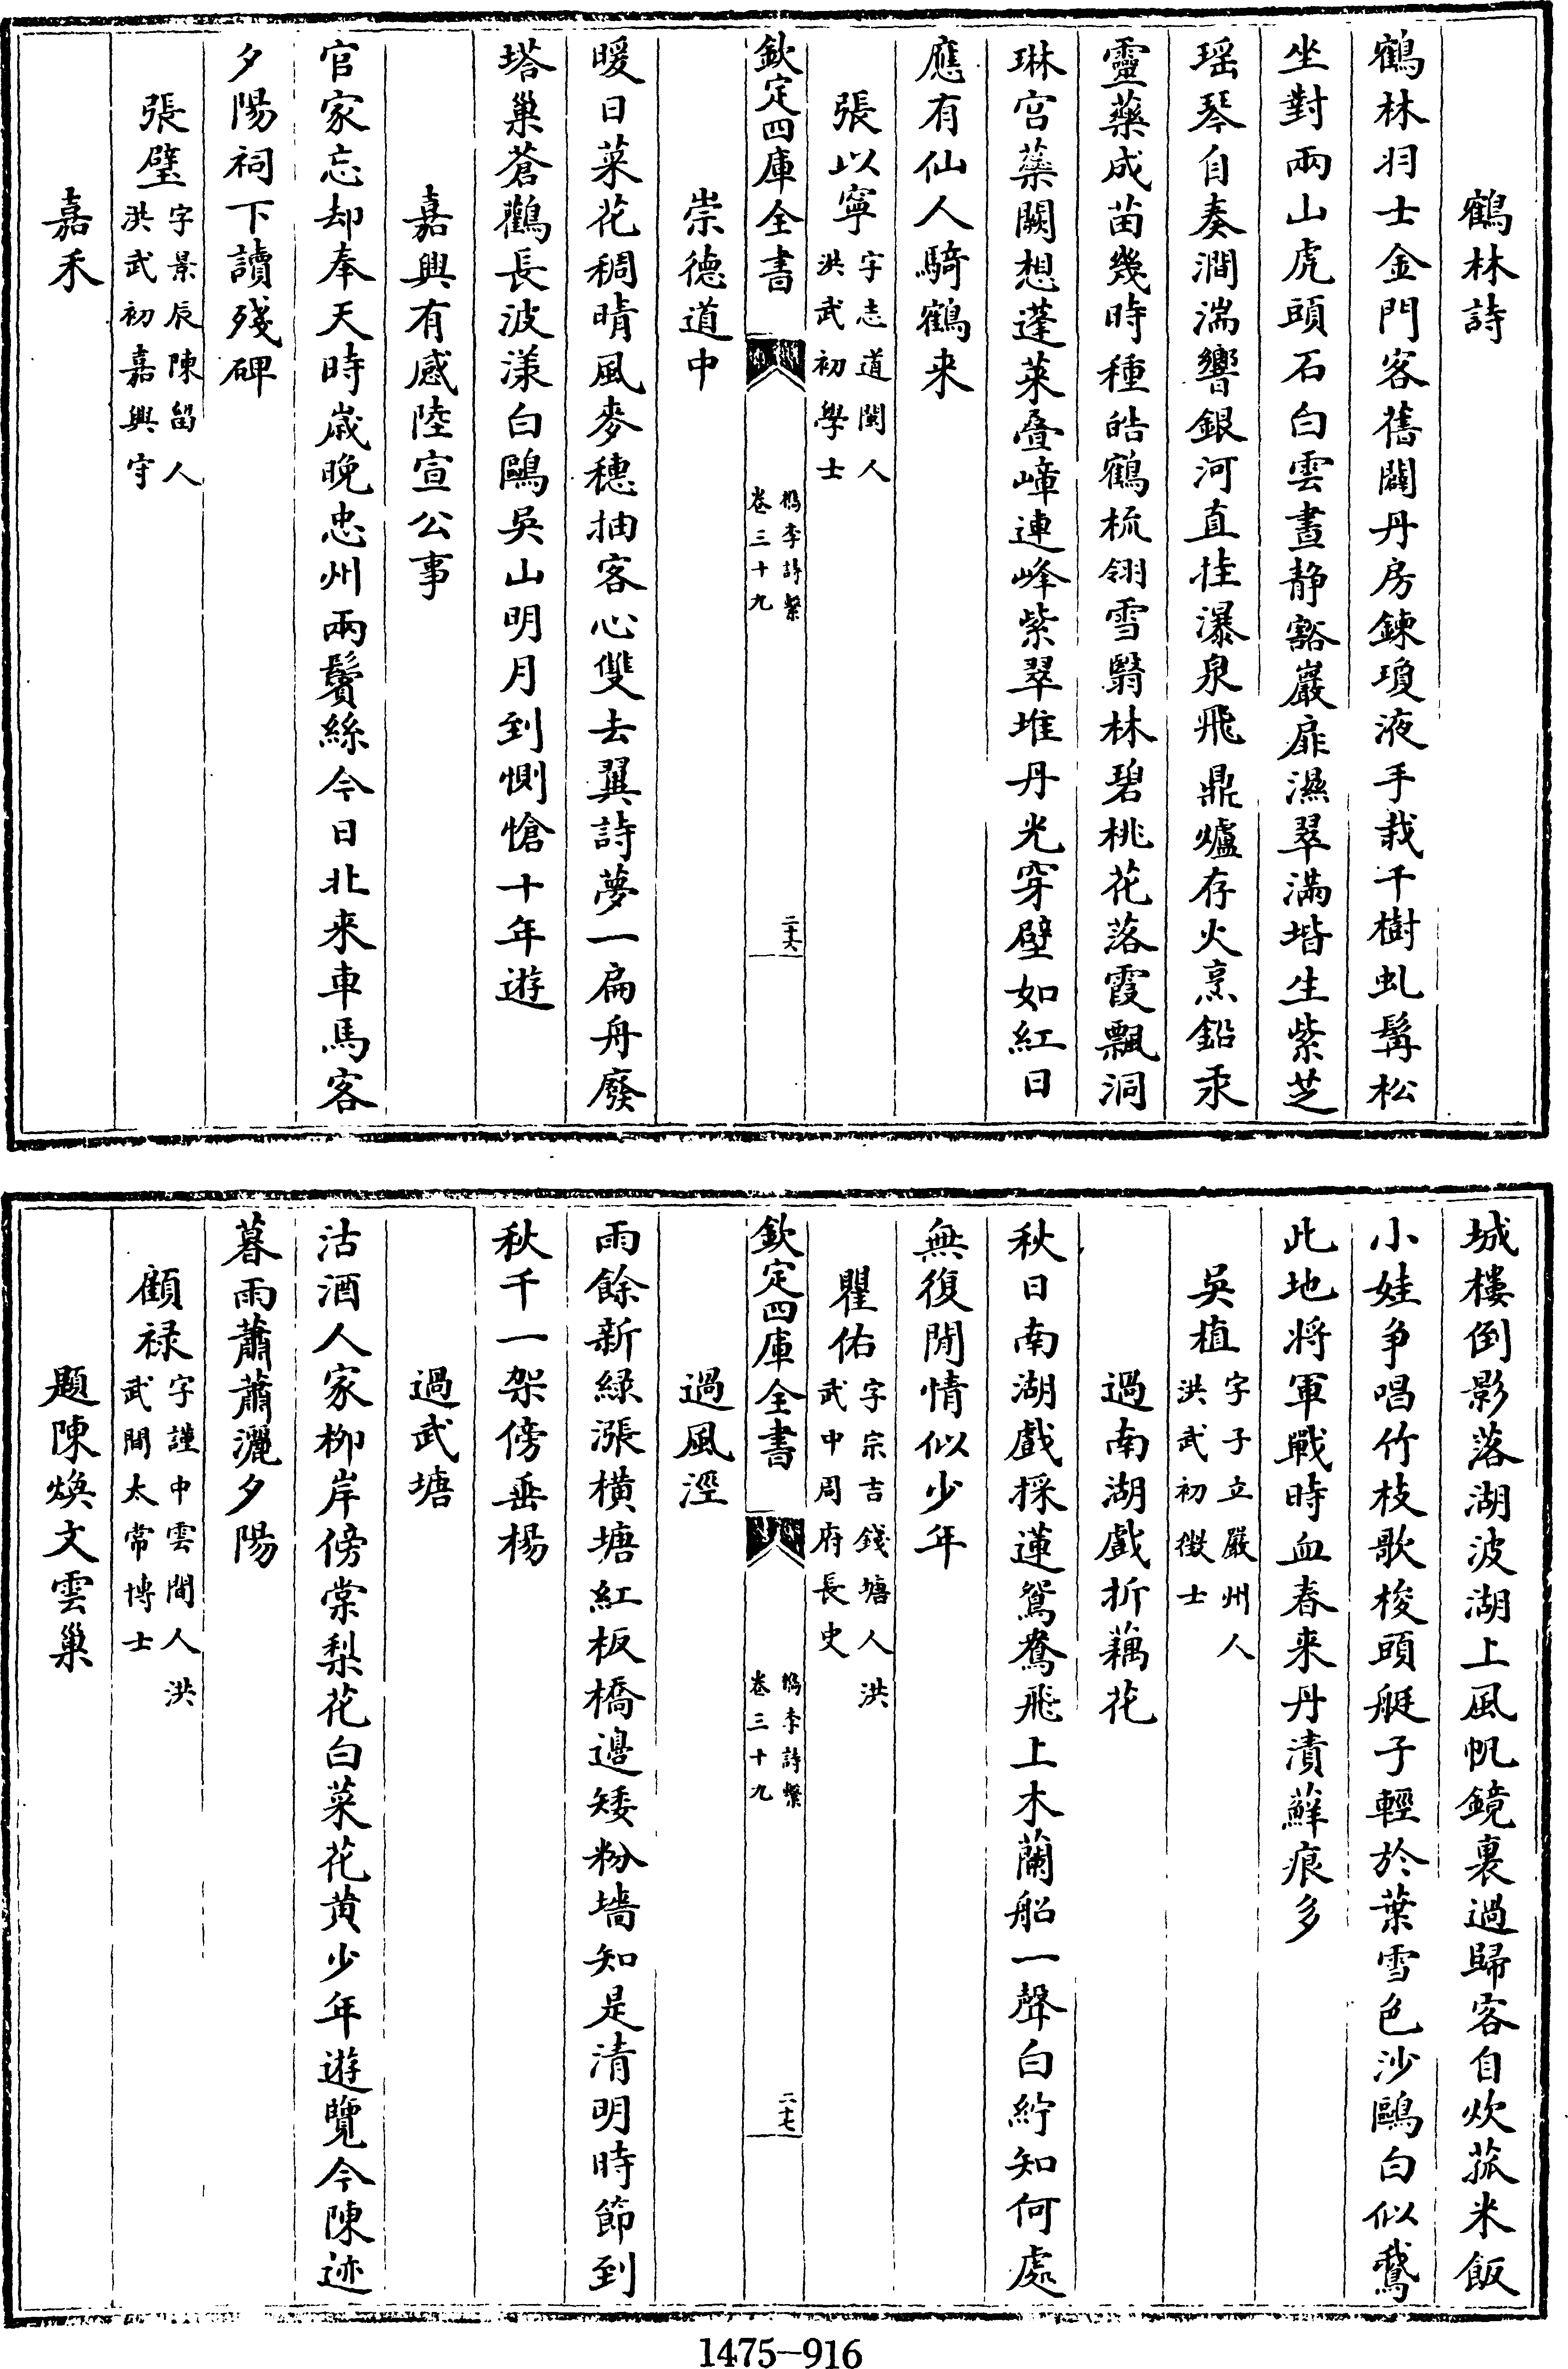 鶴林詩
鶴林羽士金門客舊闢丹房鍊瓊液手栽千樹虬髯松
坐對兩山虎頭石白雲晝静豁巖扉濕翠滿堦生紫芝
瑶琴自奏澗湍響銀河直挂瀑泉飛鼎爐存火烹鉛汞
靈藥成苗幾時種皓鶴梳翎雪翳林碧桃花落霞飄洞
琳宫蘂闕想蓬莱疊嶂連峰紫翠堆丹光穿壁如紅日
應有仙人騎鶴来
張以寧字志道閩人洪武初學士
欽定四庫全書
檇李詩繫
卷三十九
二十六
崇德道中
暖日菜花稠晴風麥穗抽客心雙去翼詩夢一扁舟廢
塔巢蒼鸛長波漾白鷗吳山明月到惻愴十年遊
嘉興有感陸宣公事
官家忘却奉天時歲晚忠州兩鬢絲今日北来車馬客
夕陽祠下讀殘碑
張璧字景辰陳留人洪武初嘉興守
嘉禾
城樓倒影落湖波湖上風帆鏡裏過歸客自炊菰米飯
小娃争唱竹枝歌梭頭艇子輕於葉雪色沙鷗白似鵞
此地将軍戰時血春来丹漬蘚痕多
吳植字子立嚴州人洪武初徵士
過南湖戲折藕花
秋日南湖戲採蓮鴛鴦飛上木蘭船一聲白紵知何處
無復閒情似少年
瞿佑字宗吉錢塘人洪武中周府長史
欽定四庫全書
檇李詩繫
卷三十九
二十七
過風涇
雨餘新綠漲橫塘紅板橋邊矮粉墻知是清明時節到
秋千一架傍垂楊
過武塘
沽酒人家柳岸傍棠梨花白菜花黄少年遊覽今陳迹
暮雨蕭蕭灑夕陽
顧禄字謹中雲間人洪武間太常博士
題陳煥文雲巢
1475-916